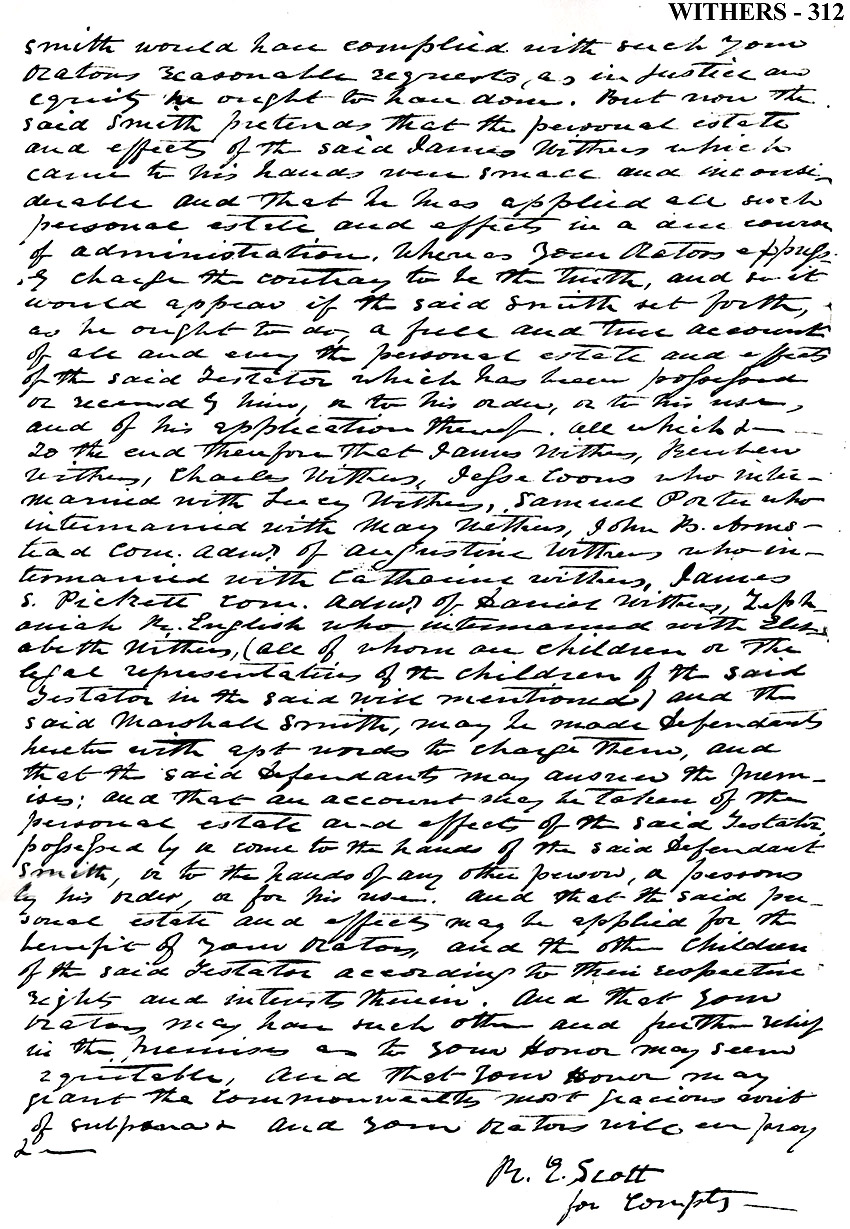 WITHERS - 312
Smith would have complied with such your
Orators reasonable requests, as in justice and
equity he ought to have done. But now the
said Smith pretends that the personal estate
and effects of the said James Withers which
came to his hands were small and inconsi-
derable and that he has applied all such
personal estate and effects in a due course
of administration. Whereas your Orators express-
ly charge the contrary to be the truth, and so it
would appear if the said Smith set forth,
as he ought to do, a full and true account
of all and every the personal estate and effects
of the said Testator which has been possessed
or received by him, or to his order, or to his use,
and of his application thereof. All which &—
To the end therefore that James Withers, Reuben
Withers, Charles Withers, Jesse Coons who inter-
married with Lucy Withers, Samuel Porter who
intermarried with Mary Withers, John B. Arms-
tead Com. admr. of Augustine Withers who in-
termarried with Catharine Withers, James
S. Pickett Com. admr. of Daniel Withers, Zeph-
aniah K. English who intermarried with Eliz-
abeth Withers, (all of whom are children or the
legal representatives of the children of the said
Testator in the said will mentioned) and the
said Marshall Smith, may be made Defendants
hereto with apt words to charge them, and
that the said Defendants may answer the prem-
ises; and that an account may be taken of the
personal estate and effects of the said Testator
possessed by or come to the hands of the said Defendant
Smith, or to the hands of any other person, or persons
by his order, or for his use. And that the said per-
sonal estate and effects may be applied for the
benefit of your Orators, and the other Children
of the said Testator according to their respective
rights and interests therein. And that your
Orators may have such other and further relief
in the premises as to your Honor may seem
equitable, And that your Honor may
grant the Commonwealths most gracious writ
of subpoena & And your Orators will ever pray
&—
R. E. Scott
for Compts—